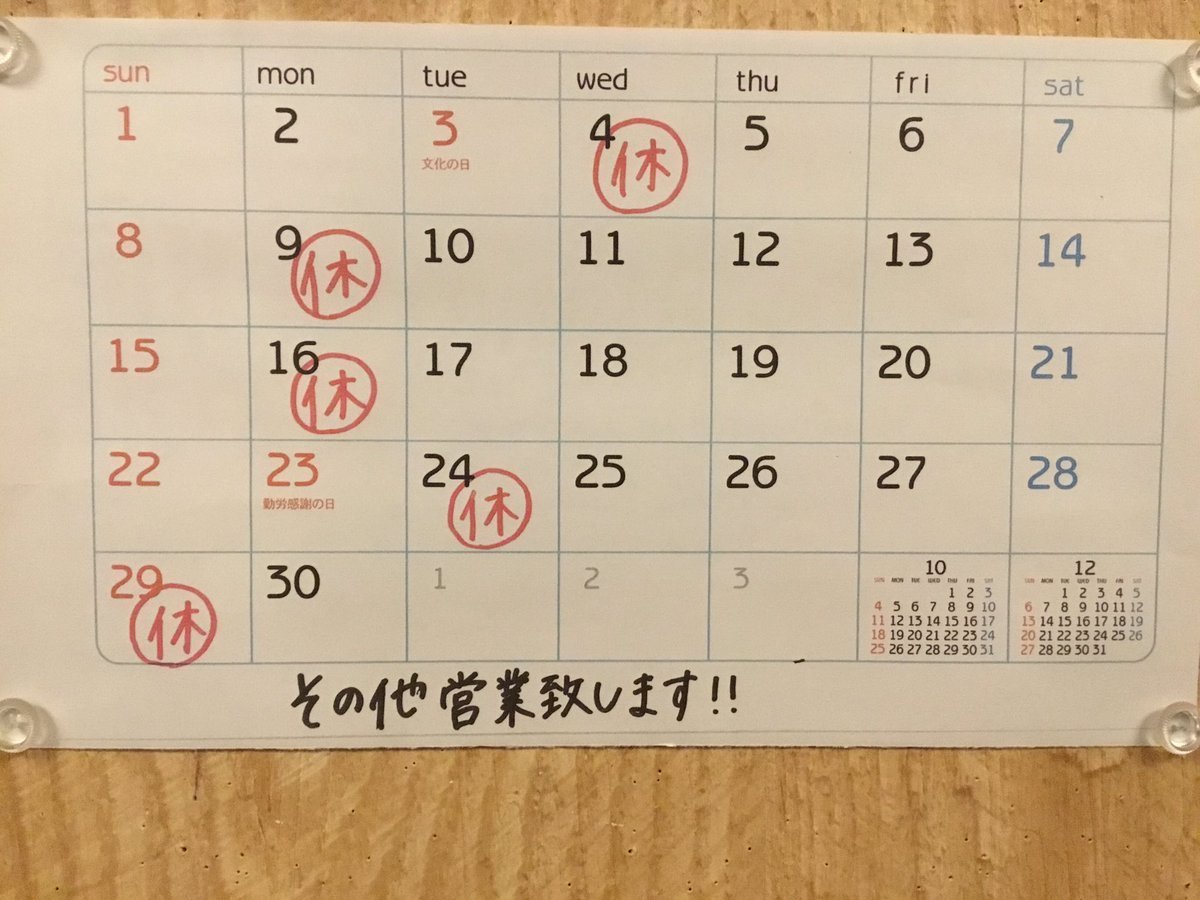 sun mon tue wed thu fri sat
1 2 3 4 5 6 7
文化の日 休
8 9 10 11 12 13 14
休
15 16 17 18 19 20 21
休
22 23 24 25 26 27 28
勤労感謝の日 休
29 30 1 2 3
休
10
SUN MON TUE WED THU FRI SAT
1 2 3
4 5 6 7 8 9 10
11 12 13 14 15 16 17
18 19 20 21 22 23 24
25 26 27 28 29 30 31
12
SUN MON TUE WED THU FRI SAT
1 2 3 4 5
6 7 8 9 10 11 12
13 14 15 16 17 18 19
20 21 22 23 24 25 26
27 28 29 30 31
その他営業致します!!